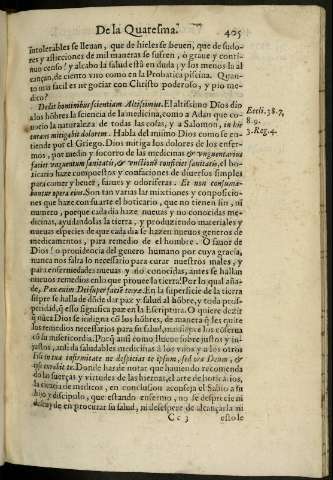 De la Quaresma. 405
Intolerables se lleuan, que de hieles se beuen, que de sudo-
res y aflicciones de mil maneras se sufren, ò graue y conti-
nuo censo! y alcabo la salud està en duda; y los menos la al
cançan, de ciento viuo como en la Probatica piscina. Quan-
to mas facil es negociar con Christo poderoso, y pio me-
dico?
Dedit hominibus scientiam Altissimus. El altissimo Dios dio
a los hõbres la sciencia de la medicina, como a Adan que co-
nocio la naturaleza de todas las cosas, y a Salomon, in his
curans mitigabit dolorem. Habla del mismo Dios como se en-
tiende por el Griego. Dios mitiga los dolores de los enfer-
mos, por medio y socorro de las medicinas & vnguentarius
faciet vnguentum sanitatis, & vnctiones conficiet sanitatis, el bo-
ticario haze compuestos y confaciones de diuersos simples
para comer y beuer, sanues y odoriferas. Et non consuma-
buntur opera eius. Son tan varias las mixtiones y conposicio-
nes que haze con su arte el boticario, que no tienen fin, ni
numero, porque cada dia haze nueuas y no conocidas me-
dicinas, ayudandola la tierra, y produziendo materiales y
nueuas especies de que cada dia se hazen nueuos generos de
medicamentos, para remedio de el hombre. O fauor de
Dios! o prouidencia del genero humano por cuya gracia,
nunca nos falta lo necessario para curar nuestros males, y
para enfermedades nueuas y no conocidas, antes se hallan
nueuos remedios en lo que prouee la tierra! Por lo qual aña-
de, Pax enim Dei super faciē terræ. En la superficie de la tierra
siēpre se halla de dōde dar paz y salud al hõbre, y toda pros-
peridad, q̃ esso significa paz en la Escriptura. O quiere dezir
q̃ nũca Dios se indigna cõ los hõbres, de manera q̃ les quite
los remedios necessarios para su salud,
cõ la misericordia. Porq̃ assi como llueue sobre justos y in-
justos, assi da saludables medicinas a los vnos y a los otros
Fili in tua infirmitate ne despicias te ipsum, sed ora Deum, &
ipse curabit te. Donde has de notar que hauiendo recomenda
do las fuerças y virtudes de las hieruas, el arte de boticarios,
la ciencia de medicos, en conclusion aconseja el Sabio a su
hijo y discipulo, que estando enfermo, no se desprecie ni
descuyde en procurar su salud, ni desespere de alcançarla ni
Cc 3 esto le
Eccli. 38. 7.
8. 9.
3. Reg. 4.